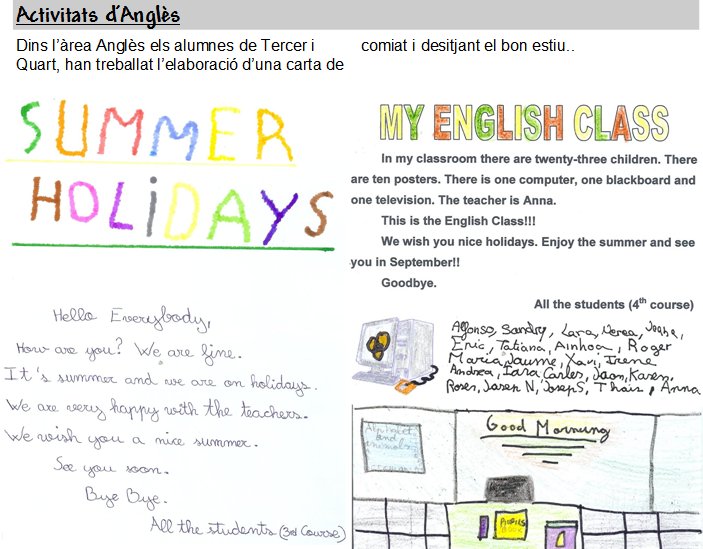 Activitats d'Anglès
Dins l'àrea Anglès els alumnes de Tercer i
Quart, han treballat l'elaboració d'una carta de
comiat i desitjant el bon estiu..
SUMMER
HOLiDAYS
Hello Everybody,
How are you? We are fine.
It's summer and we are on holidays.
We are very happy with the teachers.
We wish you a nice summer.
See you soon.
Bye Bye.
All the students (3rd Course)
MY ENGLISH CLASS
In my classroom there are twenty-three children. There
are ten posters. There is one computer, one blackboard and
one television. The teacher is Anna.
This is the English Class!!!
We wish you nice holidays. Enjoy the summer and see
you in September!!
Goodbye.
All the students (4th course)
Alfonso, Sandry, Lara, Nerea,
Eric, Tatiana, Ainhoa, Roger
Maria, Jaume, Xavi, Irene
Andrea, Carles, Joan, Karen,
Roser, Josep N, Josep S, Thais, Anna
Good Morning
Alphabet
and
animals